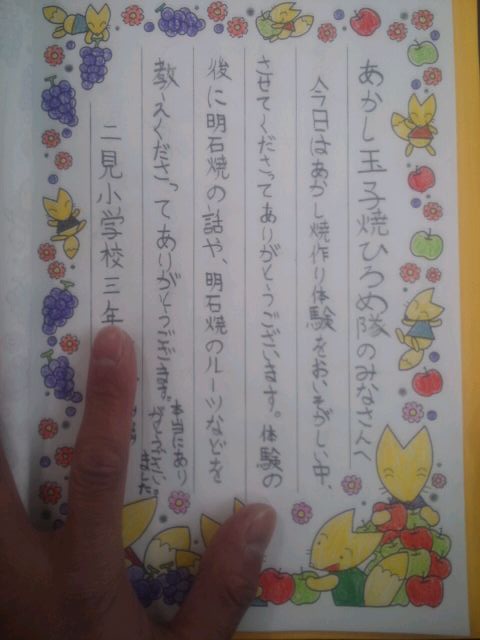 あかし玉子焼ひろめ隊のみなさんへ
今日はあかし焼作り体験をおいそがしい中、
させてくださってありがとうございます。体験の
後に明石焼の話や、明石焼のルーツなどを
教えくださってありがとうございます。本当にあり
がとうござい
ました
二見小学校三年